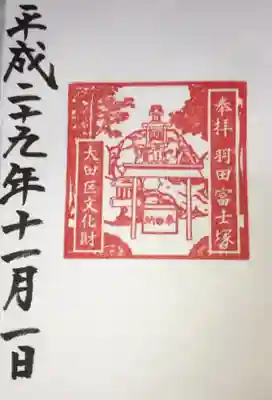 奉拝 羽田富士塚
大田区文化財
平成二十九年十一月一日